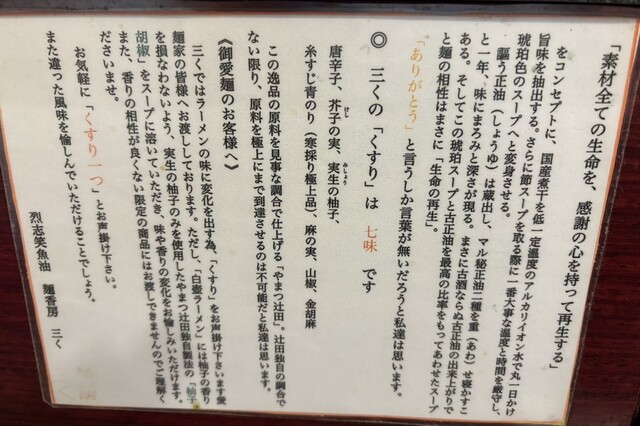 「素材全ての生命を、感謝の心を持って再生する」
をコンセプトに、国産煮干を低一定温度のアルカリイオン水で丸一日かけ
旨味を抽出する。さらに節スープを取る際に一番大事な温度と時間を厳守し、
琥珀色のスープへと変身させる。
謳う正油（しょうゆ）は蔵出し、マル秘正油二種を重（あわ）せ寝かすこ
と一年、味にまろみと深さが現る。まさに古酒ならぬ古正油の出来上がりで
ある。そしてこの琥珀スープと古正油を最高の比率をもってあわせたスープ
と麺の相性はまさに「生命の再生」。
「ありがとう」と言うしか言葉が無いだろうと私達は思います。
◎　三くの「くすり」は　七味　です
唐辛子、芥子の実、実生の柚子、
けし
みしょう
糸すじ青のり（寒採り極上品）、麻の実、山椒、金胡麻
この逸品の原料を見事な調合で仕上げる「やまつ辻田」。辻田独自の調合で
ない限り、原料を極上にまで到達させるのは不可能だと私達は思います。
《御愛麺のお客様へ》
三くではラーメンの味に変化を出す為、「くすり」をお声掛け下さいます愛
麺家の皆様へお渡ししております。ただし、「白壺ラーメン」には柚子の香り
を損なわないよう、実生の柚子のみを使用したやまつ辻田独自製法の「柚子
胡椒」をスープに溶いていただき、味や香りの変化をお愉しみいただけます。
また、香りの相性が良くない限定の商品にはお渡しできませんのでご理解く
ださいませ。
お気軽に「くすり一つ」とお声掛け下さい。
また違った風味を愉しんでいただけることでしょう。
烈志笑魚油　麺香房　三く